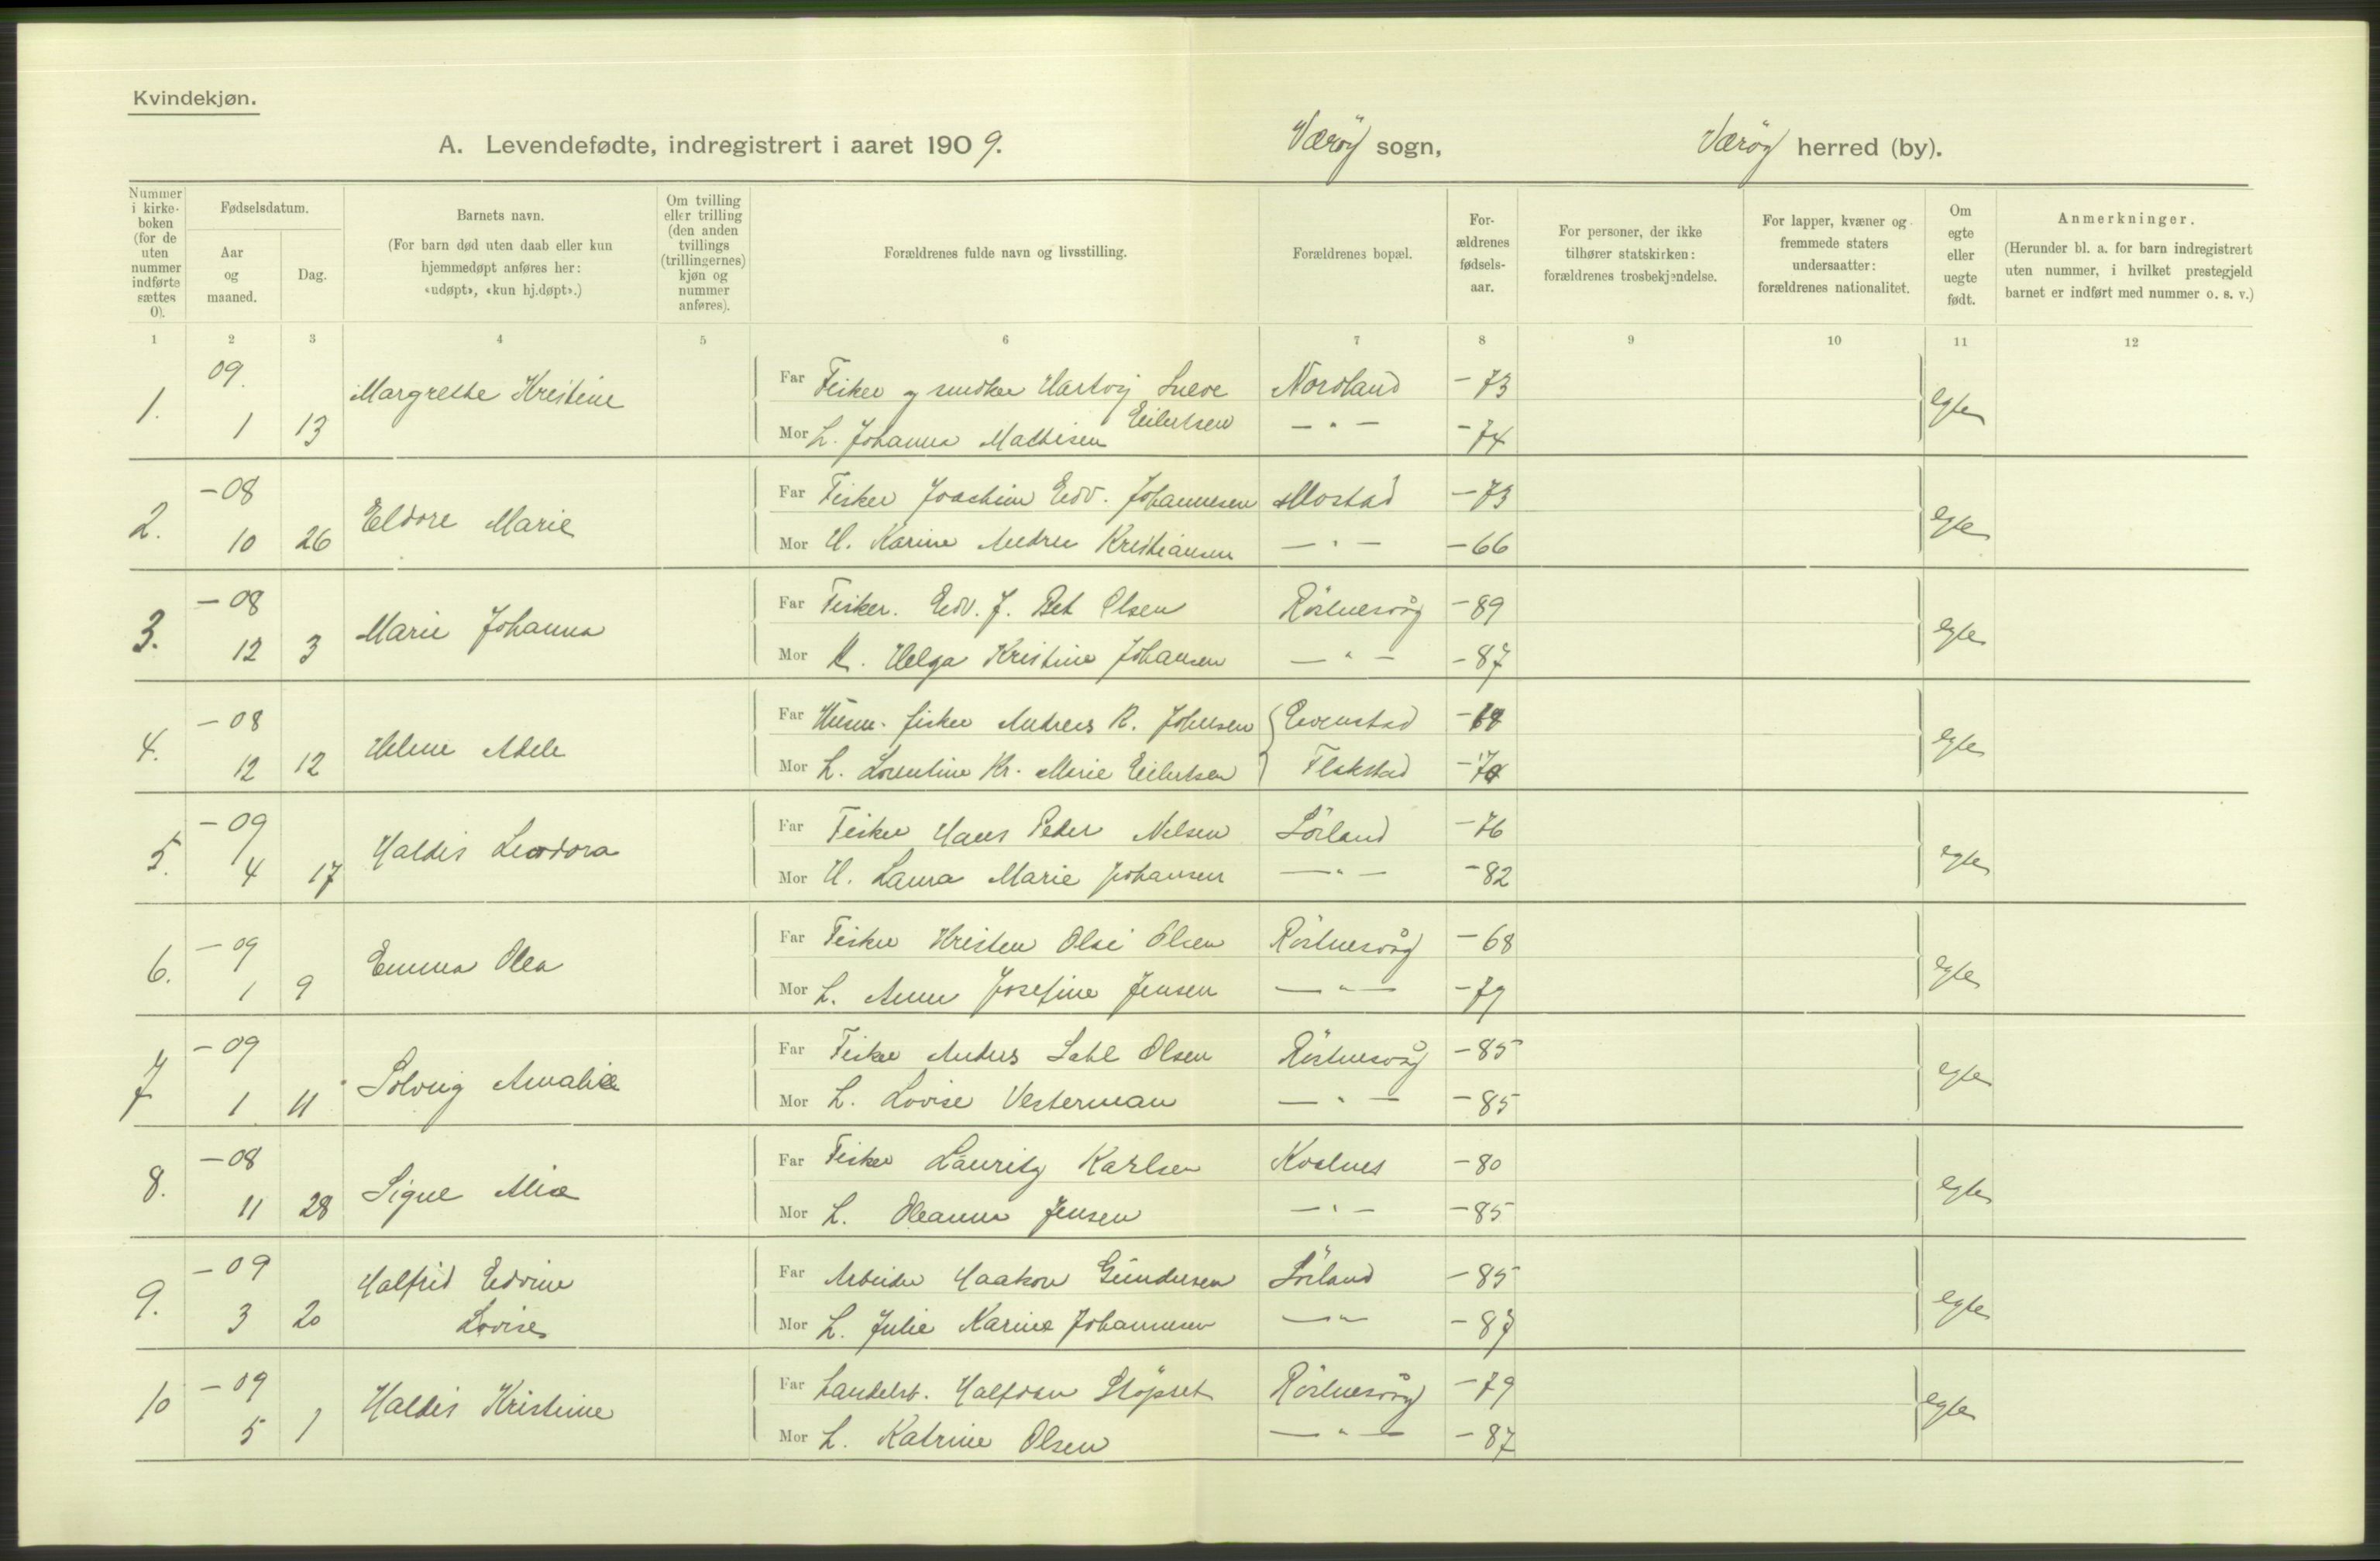 Kvindekjøn.
A. Levendefødte, indregistrert i aaret 1909. Værøy sogn, Værøy herred (by).
Nummer i kirkeboken (for de uten nummer indførte sættes 0).
Fødselsdatum.
Aar og maaned.
Dag.
Barnets navn.
(For barn død uten daab eller kun hjemmedøpt anføres her: «udøpt», «kun hj.døpt».)
Om tvilling eller trilling (den anden tvillings (trillingernes) kjøn og nummer anføres).
Forældrenes fulde navn og livsstilling.
Forældrenes bopæl.
Forældrenes fødselsaar.
For personer, der ikke tilhører statskirken: forældrenes trosbekjendelse.
For lapper, kvæner og fremmede staters undersaatter: forældrenes nationalitet.
Om egte eller uegte født.
Anmerkninger.
(Herunder bl. a. for barn indregistrert uten nummer, i hvilket prestegjeld barnet er indført med nummer o. s. v.)
1 2 3 4 5 6 7 8 9 10 11 12
1. 09. 1 13 Margrethe Kristine
Far Fisker og snedker Hartvig Eilertsen Nordland -73 egte
Mor L. Johanna Mathisen — " — -74
2. -08 10 26 Eldore Marie
Far Fisker Joachim Edv. Johannesen Mostad -73 egte
Mor H. Karine Andrea Kristiansen — " — -66
3. -08 12 3 Marie Johanna
Far Fisker. Edv. J. Olsen Röstnesvåg -89 egte
Mor Helga Kristine Johansen — " — -87
4. -08 12 12 Helene Adele
Far fisker Andreas R. Johnsen Evenstad egte
Mor L. Lorentine Kr. Marie Eilertsen Flakstad
5. -09 4 17 Haldis Leodora
Far Fisker Hans Peder Nilsen Sörland -76 egte
Mor H. Laura Marie Johansen — " — -82
6. -09 1 9 Emma Olea
Far Fisker Kristen Olai Olsen Röstnesvåg -68 egte
Mor L. Anne Josefine Jensen — " — -79
7 -09 1 11 Solveig Amalie
Far Fisker Anders Olsen Röstnesvåg -85 egte
Mor L. Lovise Vesterman — " — -85
8. -08 11 28 Signe Alice
Far Fisker Lauritz Karlsen Kvalnes -80 egte
Mor L. Oleanna Jensen — " — -85
9. -09 3 20 Halfrid Edvine Lovise
Far Arbeider Haakon Gundersen Sörland -85 egte
Mor L. Julie Karine Johannesen — " — -87
10 -09 5 1 Haldis Kristine
Far Halfdan Röstnesvåg -79 egte
Mor L. Katrine Olsen — " — -87